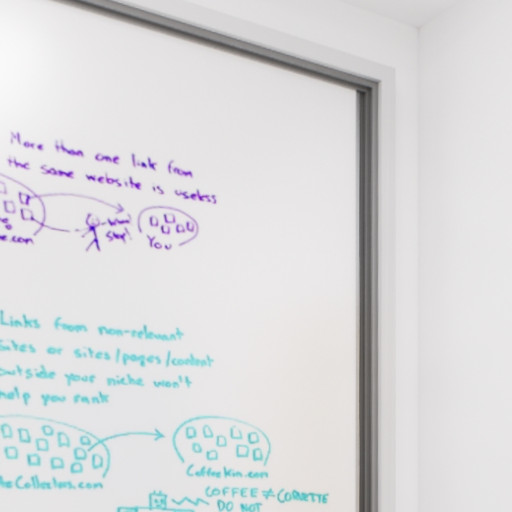 More than one link from
the same website is useless
You
Links from non-relevant
sites or sites/pages/content
outside your niche won't
help you rank
CoffeeKin.com
COFFEE ≠
DO NOT